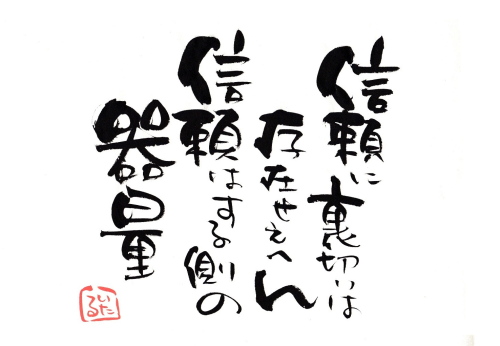 信頼に裏切りは
存在せえへん
信頼はする側の
器量
いたる